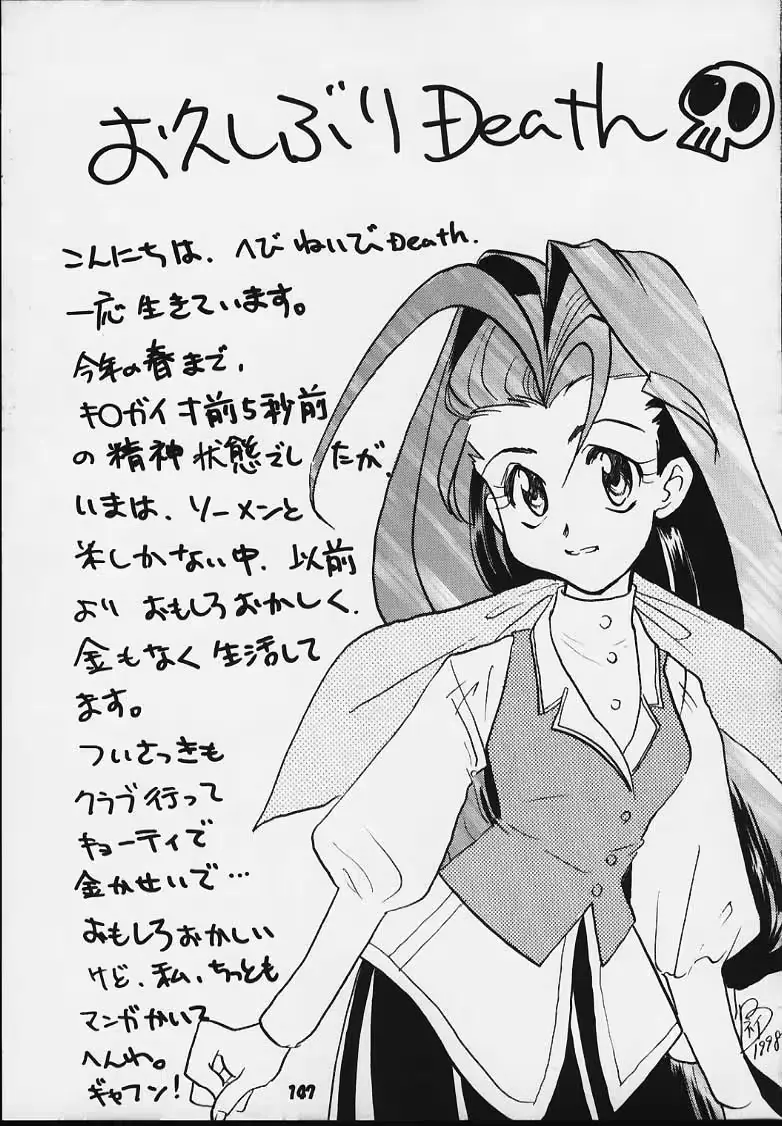 お久しぶりDeath
こんにちは、へびねいびDeath.
一応生きています。
今年の春まで、
キ○ガイ才前5秒前
の精神状態でしたが、
いまは、ソーメンと
米しかない中、以前
よりおもしろおかしく、
金もなく生活して
ます。
ついさっきも
クラブ行って
キョーティで
金かせいで…
おもしろおかしい
けど、私、ちっとも
マンガかいて
へんわ。
ギャフン!
107
1998